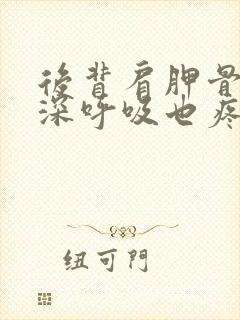 後背肩胛骨
深呼吸也疼
纽可門